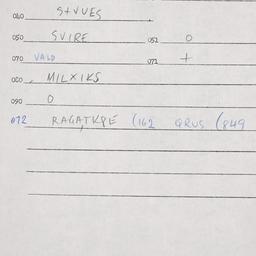 040 S+VVES
050 SVIRE 052 O
070 VALD 072 +
080 MILXIKS
090 O
072 RAGATKPE (162 QRUS (849